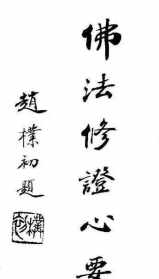 佛法修證心要
趙樸初題
樸初